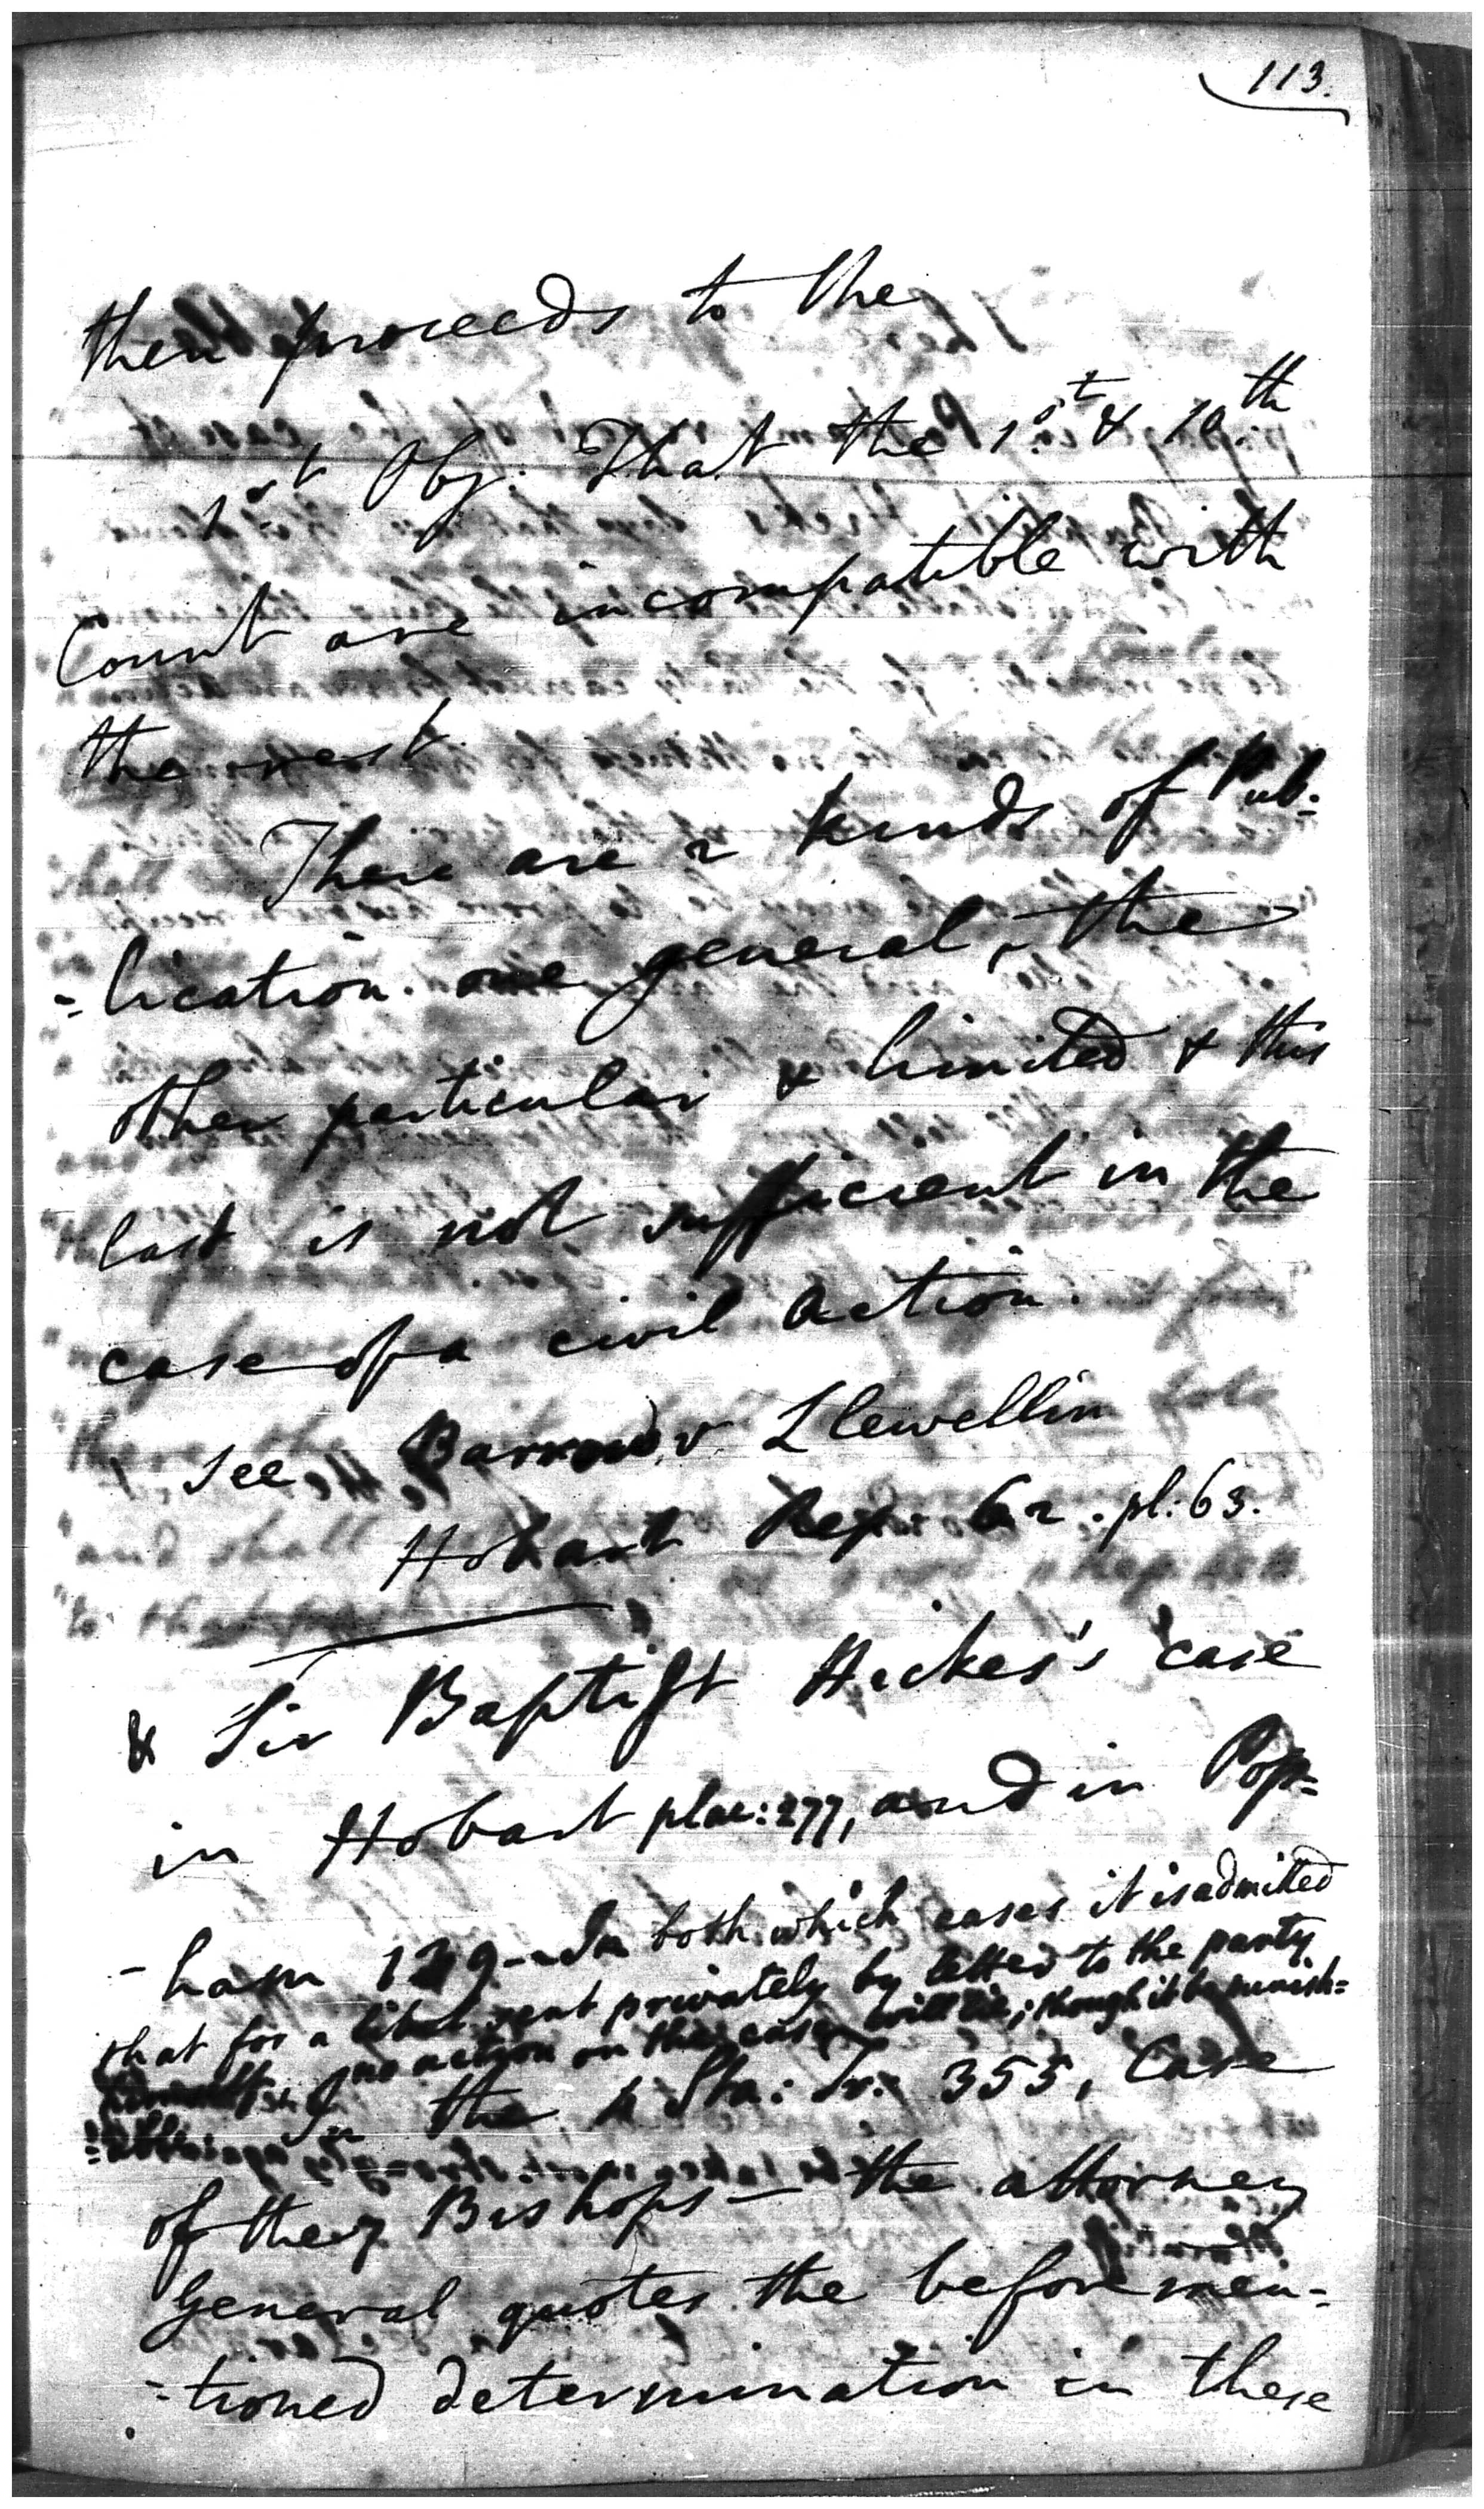 113.
then proceeds to the
1st Obj: That the 1st & 10th
Count are incompatible with
the rest.
There are 2 kinds of Pub:
=lication. one general, the
other particular & limited & this
last is not sufficient in the
case of a civil action.
see Barrow v Llewellin
Hobart Rep. 62. pl: 63.
& Sir Baptist Hickes's case
in Hobart plac: 277, and in Pop=
-ham 139 - In both which cases it is admitted
that for a libel sent privately by letter to the party
no action on the case will lie; though it be punish=
=able:
In the 4 Sta: Tr: 355, Case
of the 7 Bishops — the attorney
General quotes the before men=
=tioned determination in these